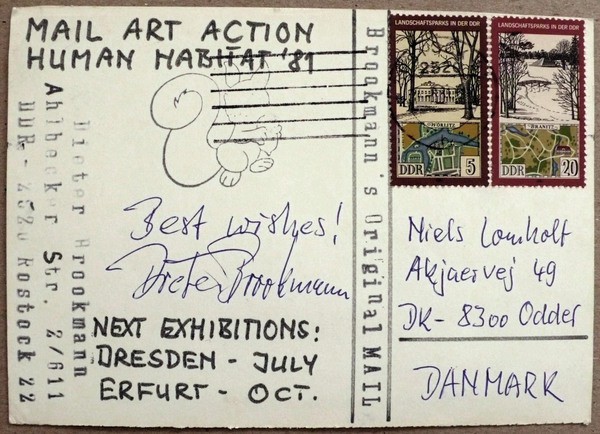 MAIL ART ACTION
HUMAN HABITAT '81
Dieter Brookmann
Ahlbecker Str. 2/611
DDR-2520 Rostock 22
Best wishes!
Dieter Brookmann
NEXT EXHIBITIONS:
DRESDEN - JULY
ERFURT - OCT.
Brookmann's Original MAIL
LANDSCHAFTSPARKS IN DER DDR
WÖRLITZ
DDR 5
LANDSCHAFTSPARKS IN DER DDR
BRANITZ
DDR 20
Niels Lomholt
Akjaervej 49
DK-8300 Odder
DANMARK